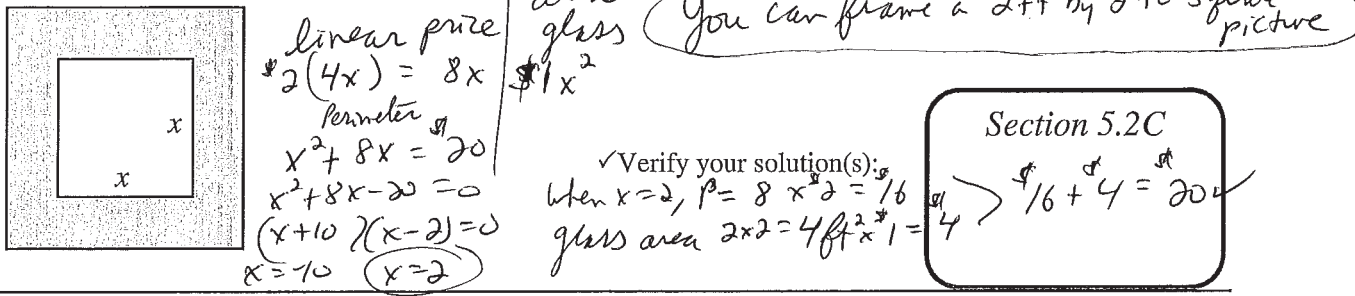 linear price
$2(4x) = 8x
Perimeter
x² + 8x = $20
x² + 8x - 20 = 0
(x+10)(x-2) = 0
x = -10 x = 2
glass
$1x²
You can frame a 2ft by 2ft
picture
x
x
✓Verify your solution(s):
When x = 2, P = 8 x $2 = $16
glass area 2x2 = 4ft² x $1 = $4
$16 + $4 = $20 ✓
Section 5.2C